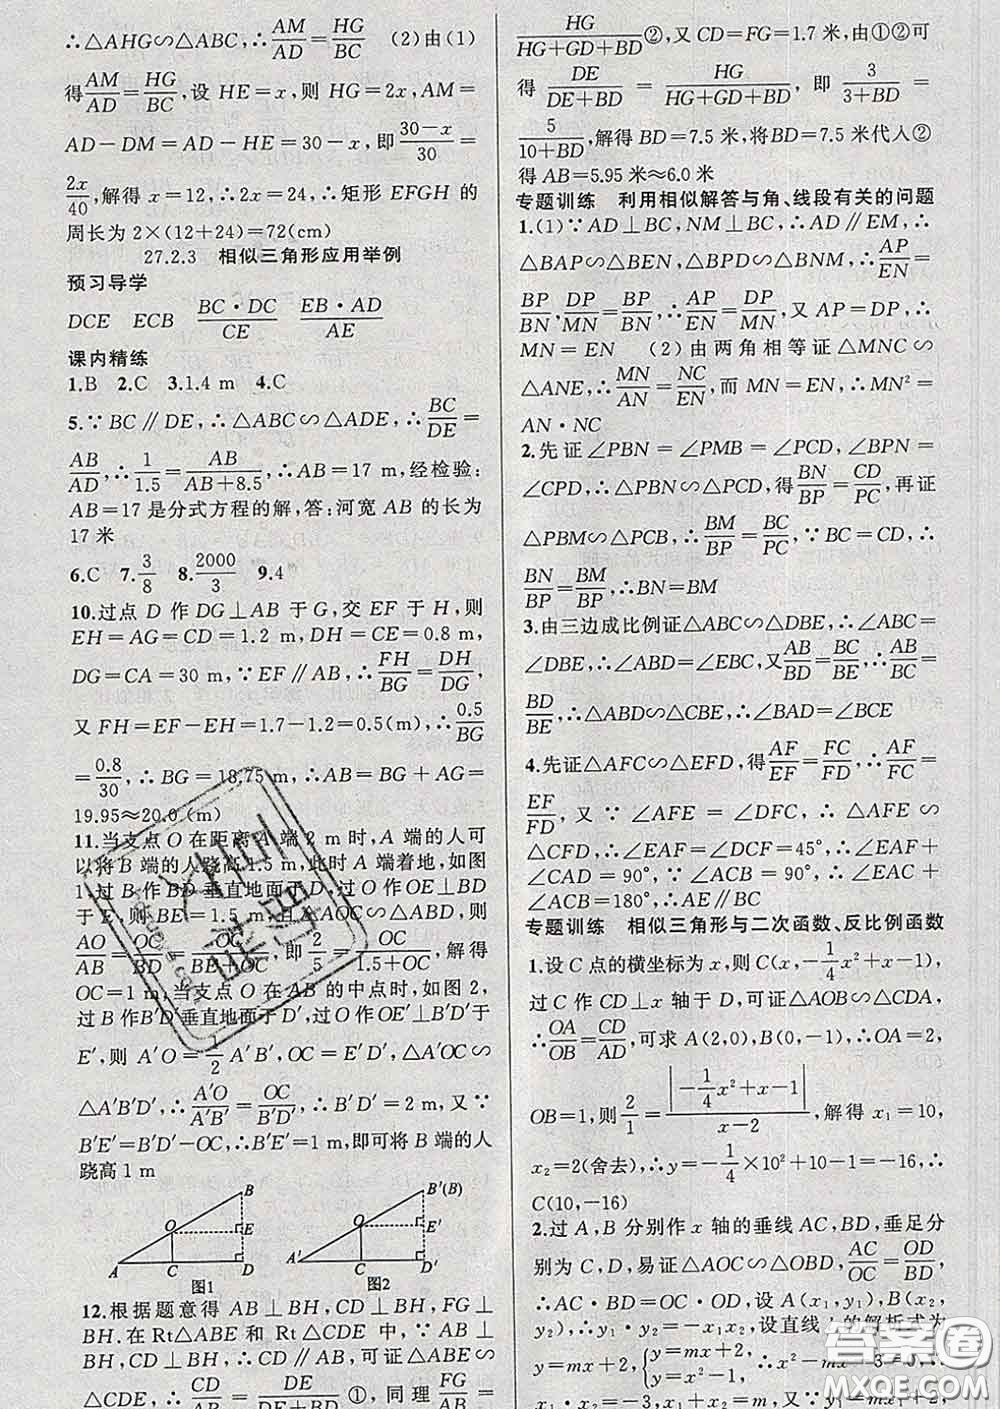 ∴△AHG∽△ABC,∴AM/AD=HG/BC (2)由(1)
得AM/AD=HG/BC,设 HE=x,则 HG=2x,AM=
AD-DM=AD-HE=30-x,即(30-x)/30=
2x/40,解得 x=12,∴2x=24,∴矩形 EFGH 的
周长为 2×(12+24)=72(cm)
27.2.3 相似三角形应用举例
预习导学
DCE ECB BC·DC/CE EB·AD/AE
课内精练
1.B 2.C 3.1.4 m 4.C
5.∵BC∥DE,∴△ABC∽△ADE,∴BC/DE=
AB/AD,∴1/1.5=AB/(AB+8.5),∴AB=17 m,经检验:
AB=17 是分式方程的解,答:河宽 AB 的长为
17 米
6.C 7.3/8 8.2000/3 9.4
10.过点 D 作 DG⊥AB 于 G,交 EF 于 H,则
EH=AG=CD=1.2 m,DH=CE=0.8 m,
DG=CA=30 m,∵EF∥AB,∴FH/BG=DH/DG,
又 FH=EF-EH=1.7-1.2=0.5(m),∴0.5/BG
=0.8/30,∴BG=18.75 m,∴AB=BG+AG=
19.95≈20.0(m)
11.当支点 O 在距离 A 端 2 m时,A 端的人可
以将 B 端的人跷高1.5 m,此时 A 端着地,如图
1,过 B 作 BD 垂直地面于 D,过 O 作 OE⊥BD
于 E,则 BE=1.5 m,且△AOC∽△ABD,则
AO/AB=OC/BD=OC/(BE+OC),即2/5=OC/(1.5+OC),解得
OC=1 m,当支点 O 在 AB 的中点时,如图 2,
过 B′作 B′D′垂直地面于 D′,过 O 作 OE′⊥B′D′于
E′,则 A′O=1/2 A′B′,OC=E′D′,△A′OC∽
△A′B′D′,∴A′O/A′B′=OC/B′D′,∴B′D′=2 m,又∵
B′E′=B′D′-OC,∴B′E′=1 m,即可将 B 端的人
跷高 1 m
B O E A C D 图1
B′(B) O E′ A′ C D′ 图2
12.根据题意得 AB⊥BH,CD⊥BH,FG⊥
BH.在 Rt△ABE 和 Rt△CDE 中,∵AB⊥
BH,CD⊥BH,∴CD∥AB,可证△ABE∽
△CDE,∴CD/AB=DE/(DE+BD)①,同理FG/AB=
HG/(HG+GD+BD)②,又 CD=FG=1.7 米,由①②可
得 DE/(DE+BD)=HG/(HG+GD+BD),即 3/(3+BD)=
5/(10+BD),解得 BD=7.5 米,将 BD=7.5 米代入②
得 AB=5.95 米≈6.0 米
专题训练 利用相似解答与角、线段有关的问题
1.(1)∵AD⊥BC,NM⊥BC,∴AD∥EM,∴
△BAP∽△BEN,△BPD∽△BNM,∴AP/EN=
BP/BN,DP/MN=BP/BN,∴AP/EN=DP/MN,又 AP=DP,∴
MN=EN (2)由两角相等证△MNC∽
△ANE,∴MN/AN=NC/EN,而 MN=EN,∴MN²=
AN·NC
2.先证∠PBN=∠PMB=∠PCD,∠BPN=
∠CPD,∴△PBN∽△PCD,得BN/BP=CD/PC,再证
△PBM∽△PCB,∴BM/BP=BC/PC,∵BC=CD,∴
BN/BP=BM/BP,∴BN=BM
3.由三边成比例证△ABC∽△DBE,∴∠ABC=
∠DBE,∴∠ABD=∠EBC,又AB/BD=BC/BE,∴AB/BC=
BD/BE,∴△ABD∽△CBE,∴∠BAD=∠BCE
4.先证△AFC∽△EFD,得AF/EF=FC/FD,∴AF/FC=
EF/FD,又∵∠AFE=∠DFC,∴△AFE∽
△CFD,∴∠EAF=∠DCF=45°,∴∠EAF+
∠CAD=90°,∵∠ACB=90°,∴∠EAC+
∠ACB=180°,∴AE∥BC
专题训练 相似三角形与二次函数、反比例函数
1.设 C 点的横坐标为 x,则 C(x,-1/4x²+x-1),
过 C 作 CD⊥x 轴于 D,可证△AOB∽△CDA,
∴OA/OB=CD/AD,可求 A(2,0),B(0,-1),∴OA=2,
OB=1,则2/1=|-1/4x²+x-1|/(x-2),解得 x₁=10,
x₂=2(舍去),∴y=-1/4×10²+10-1=-16,∴
C(10,-16)
2.过 A,B 分别作 x 轴的垂线 AC,BD,垂足分
别为 C,D,易证△AOC∽△OBD,AC/OC=OD/BD,
∴AC·BD=OC·OD,设 A(x₁,y₁),B(x₂,
y₂),∴y₁·y₂=-x₁x₂,设直线 的解析式为
答案卷
MXQE.COM